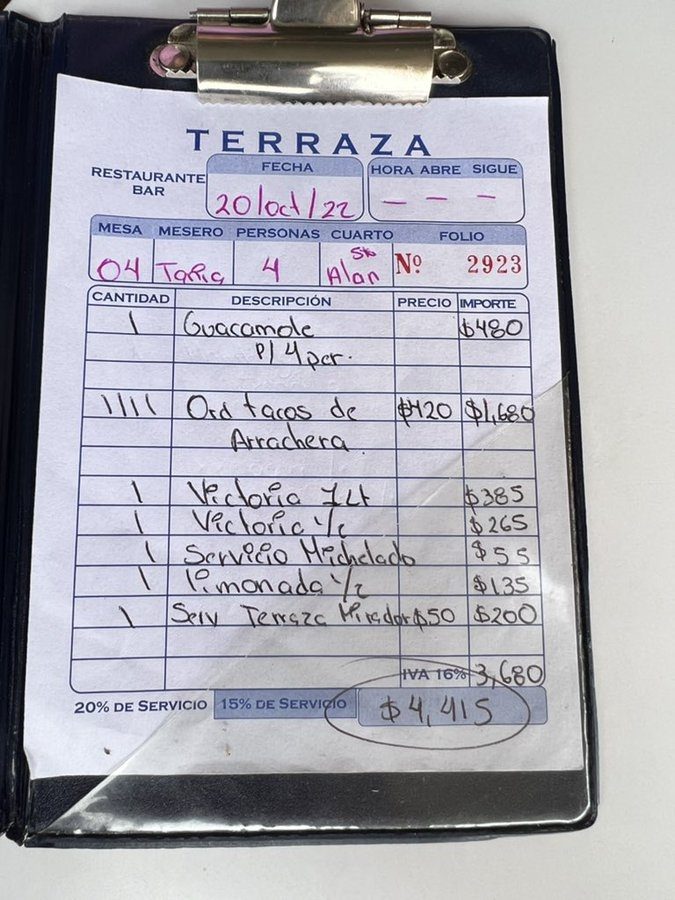 TERRAZA
RESTAURANTE BAR
FECHA
20/oct/22
HORA ABRE SIGUE
— — —
MESA MESERO PERSONAS CUARTO FOLIO
04 4 Alan Nº 2923
CANTIDAD DESCRIPCIÓN PRECIO IMPORTE
1 Guacamole $480
P/ 4 per.
1111 Ord tacos de $420 $1,680
Arrachera
1 Victoria 1Lt $385
1 Victoria 1/2 $265
1 Servicio Michelado $55
1 limonada 1/2 $135
1 Serv Terraza Mirador $50 $200
IVA 16% 3,680
20% DE SERVICIO 15% DE SERVICIO $4,415